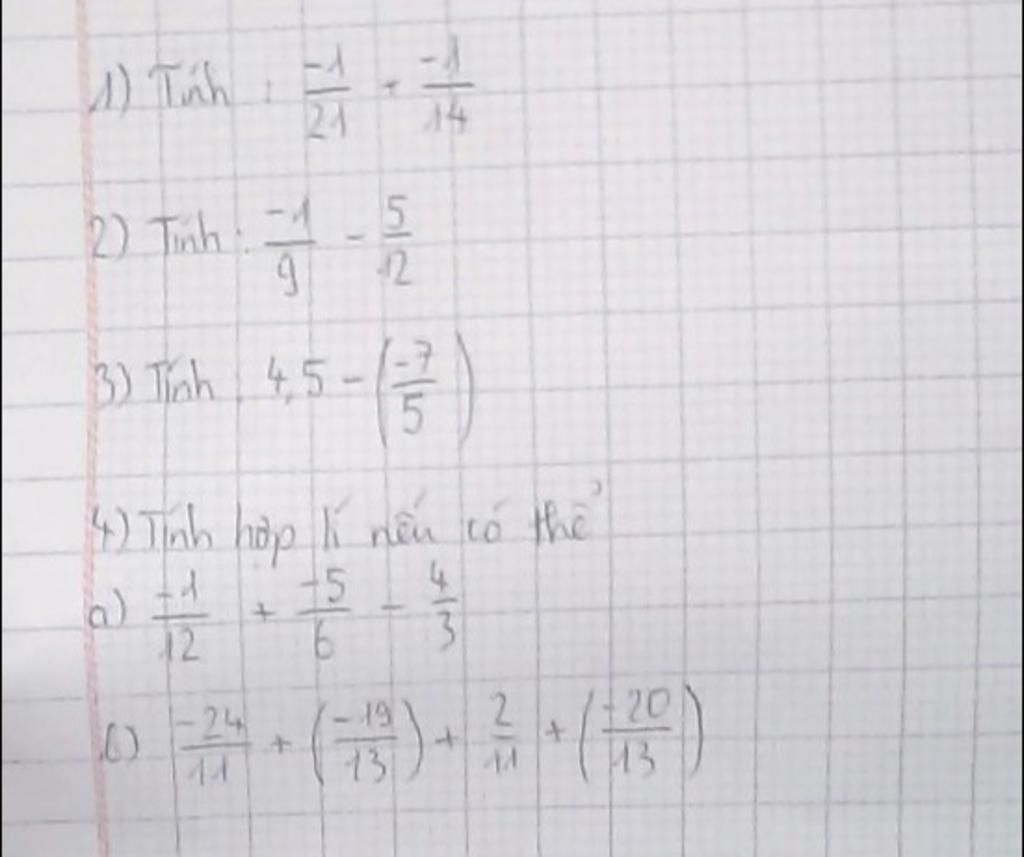 1) Tính : -1/21 - -1/14
2) Tính : -1/9 - 5/12
3) Tính : 4,5 - (-7/5)
4) Tính hợp lí nếu có thể
a) -1/12 + -5/6 - 4/3
b) -24/11 + (-19/13) + 2/11 + (-20/13)